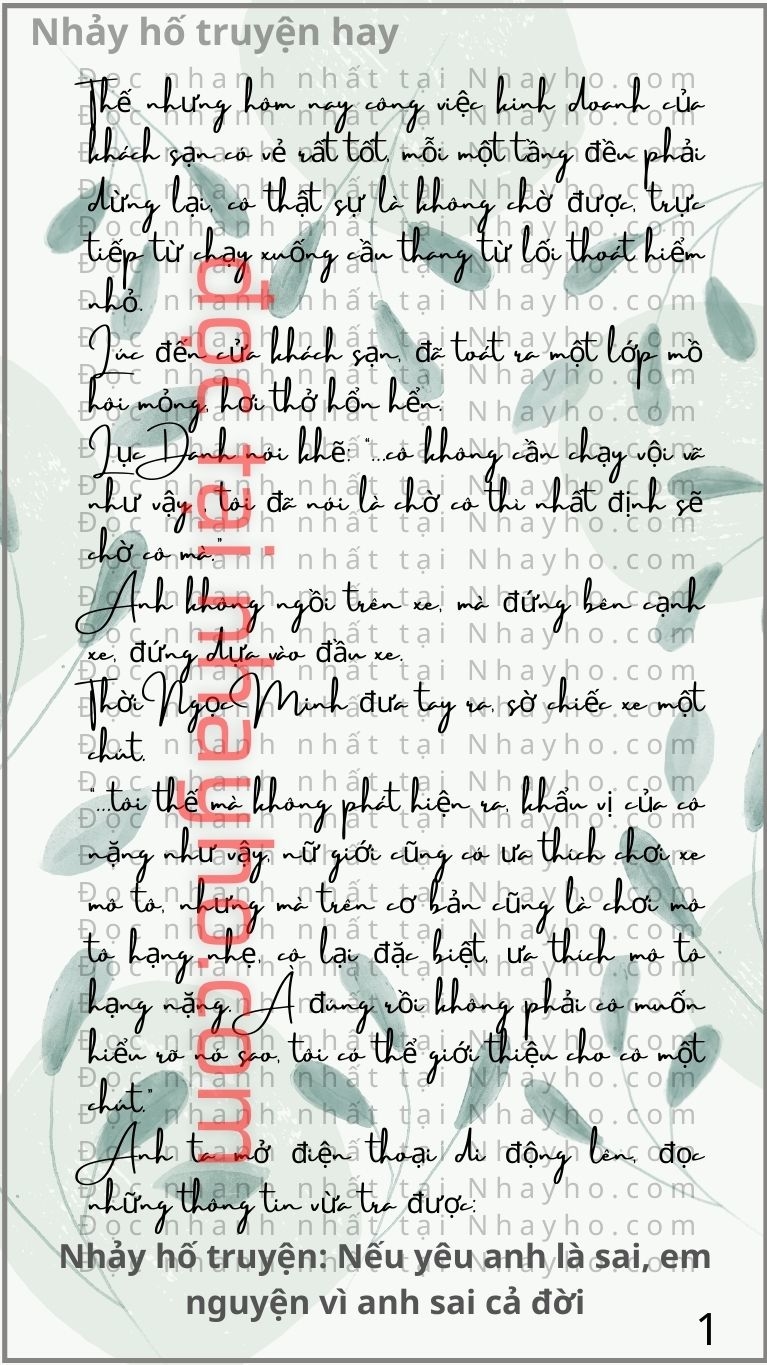 Nhảy hố truyện hay
Thế nhưng hôm nay công việc kinh doanh của
khách sạn có vẻ rất tốt, mỗi một tầng đều phải
dừng lại, cô thật sự là không chờ được, trực
tiếp từ chạy xuống cầu thang từ lối thoát hiểm
nhỏ.
Lúc đến cửa khách sạn, đã toát ra một lớp mồ
hôi mỏng, hơi thở hổn hển.
Lục Danh nói khẽ: "...cô không cần chạy vội vã
như vậy , tôi đã nói là chờ cô thì nhất định sẽ
chờ cô mà."
Anh không ngồi trên xe, mà đứng bên cạnh
xe, đứng dựa vào đầu xe.
Thời Ngọc Minh đưa tay ra, sờ chiếc xe một
chút.
"...tôi thế mà không phát hiện ra, khẩu vị của cô
nặng như vậy, nữ giới cũng có ưa thích chơi xe
mô tô, nhưng mà trên cơ bản cũng là chơi mô
tô hạng nhẹ, cô lại đặc biệt, ưa thích mô tô
hạng nặng. À đúng rồi không phải cô muốn
hiểu rõ nó sao, tôi có thể giới thiệu cho cô một
chút."
Anh ta mở điện thoại di động lên, đọc
những thông tin vừa tra được:
đọc tại nhayho.com
Đọc nhanh nhất tại Nhayho.com
Nhảy hố truyện: Nếu yêu anh là sai, em
nguyện vì anh sai cả đời
1